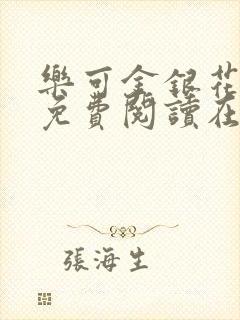 樂可金銀花
免費閱讀在
張海生